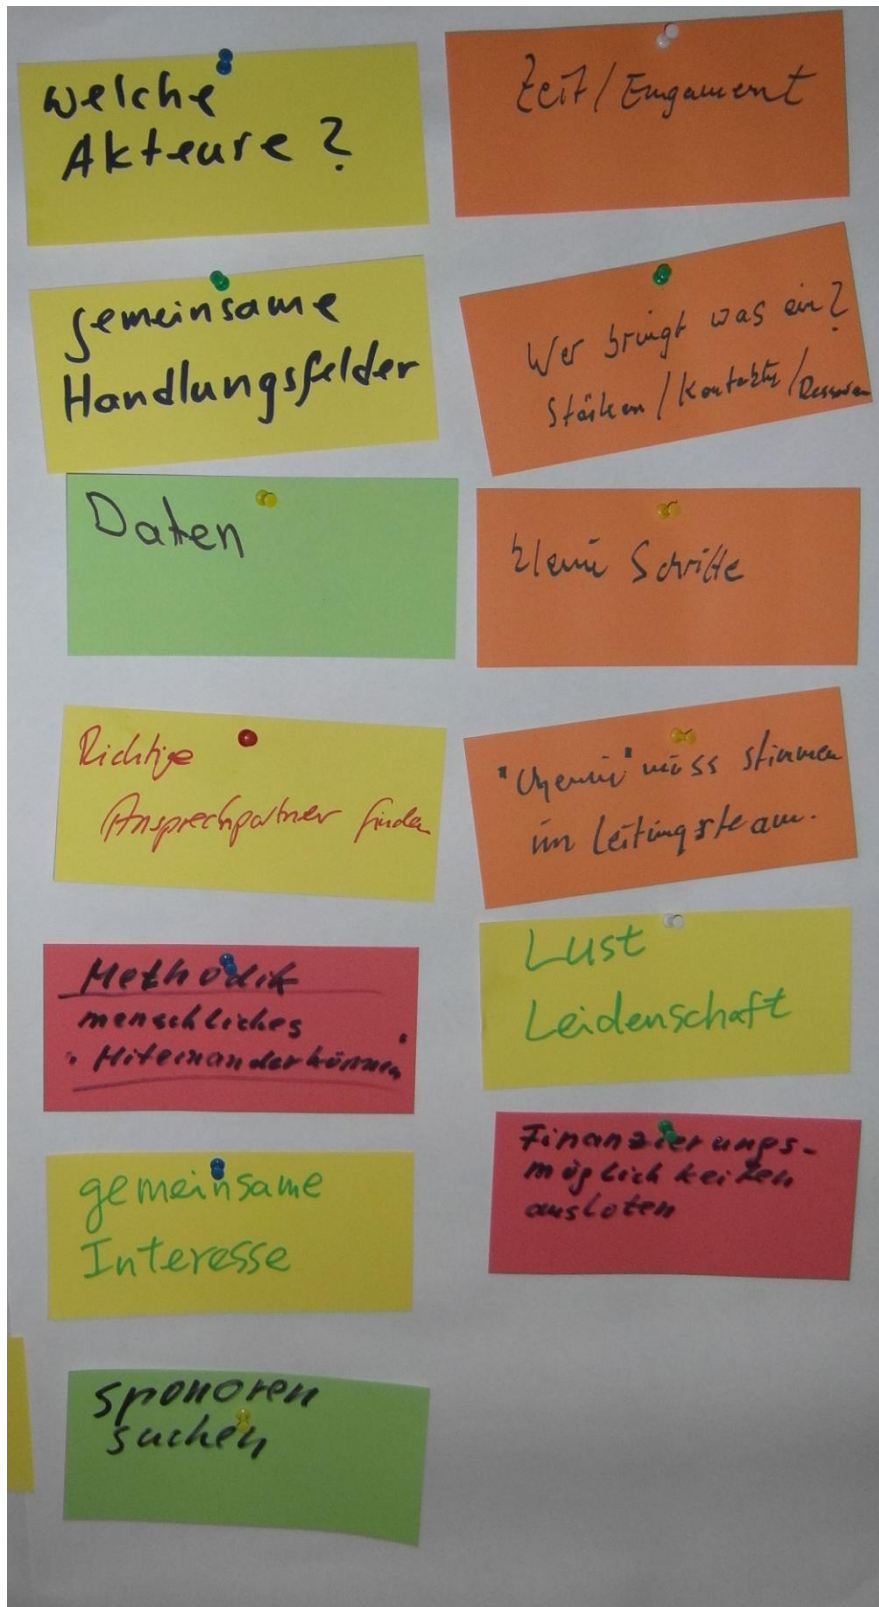 welche
Akteure?
gemeinsame
Handlungsfelder
Daten
Richtige
Ansprechpartner finden
Methodik
menschliches
"Miteinanderkönnen"
gemeinsame
Interesse
sponoren
suchen
Zeit / Engament
Wer bringt was ein?
Stärken / Kontakte /
kleine Schritte
"Chemie" muss stimmen
im Leitungsteam.
Lust
Leidenschaft
Finanzierungs-
möglichkeiten
ausloten